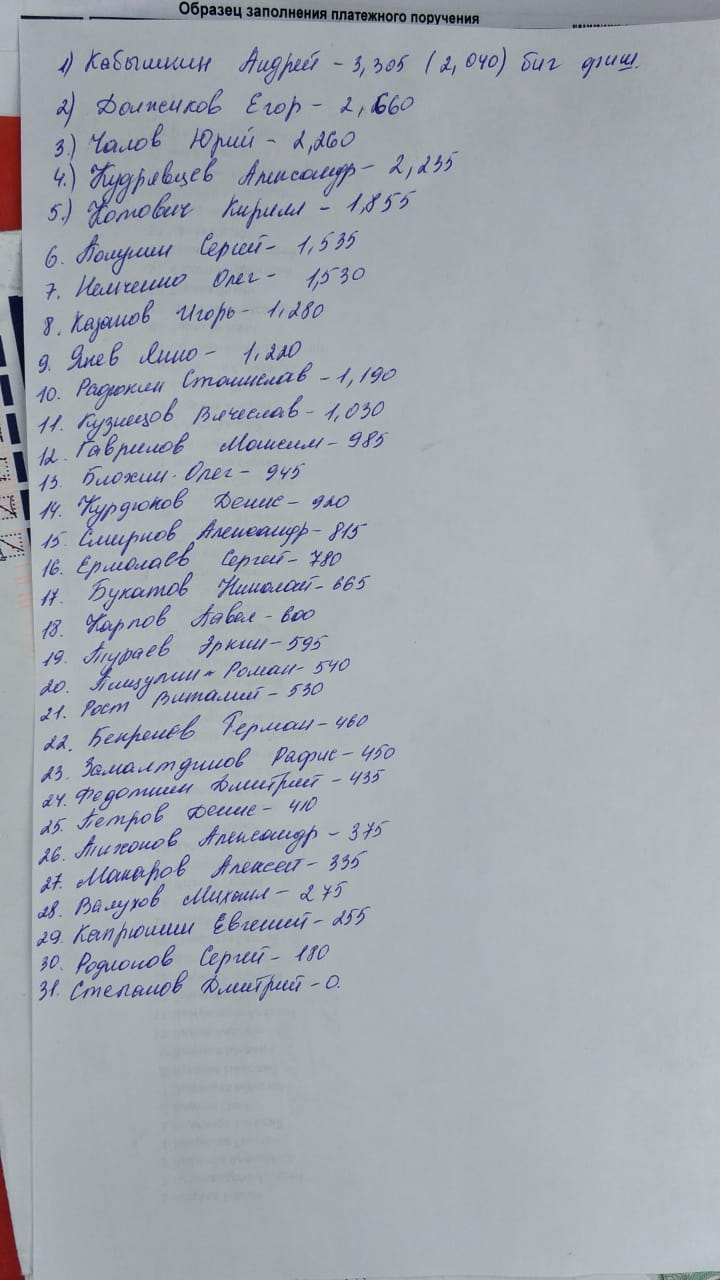 Образец заполнения платежного поручения
1) Кабышкин Андрей - 3,305 (2,040) биг фиш.
2) Должиков Егор - 2,660
3.) Чалов Юрий - 2,260
4.) Кудрявцев Александр - 2,235
5.) Котович Кирилл - 1,855
6. Полунин Сергей - 1,535
7. Немченко Олег - 1,530
8. Казаков Игорь - 1,280
9. Янев Янко - 1,220
10. Радюкин Станислав - 1,190
11. Кузнецов Вячеслав - 1,030
12. Гаврилов Максим - 985
13. Блохин Олег - 945
14. Курдюков Денис - 920
15. Смирнов Александр - 815
16. Ермолаев Сергей - 780
17. Букатов Николай - 665
18. Карпов Павел - 600
19. Тураев Эркин - 595
20. Пищулин Роман - 540
21. Рост Виталий - 530
22. Бекренев Герман - 460
23. Замалтдинов Рафис - 450
24. Федоткин Дмитрий - 435
25. Петров Денис - 410
26. Тихонов Александр - 375
27. Макаров Алексей - 335
28. Валухов Михаил - 275
29. Капрюшин Евгений - 255
30. Родионов Сергей - 180
31. Степанов Дмитрий - 0.